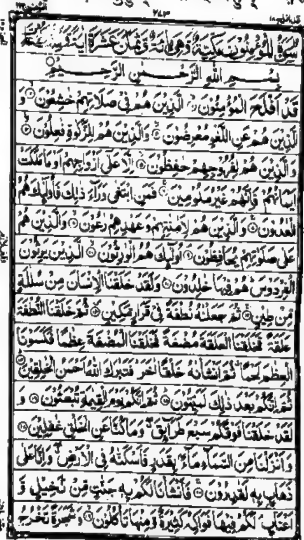 بِسْمِ اللهِ الرَّحْمٰنِ الرَّحِيْمِ
قَدْ اَفْلَحَ الْمُؤْمِنُوْنَ الَّذِيْنَ هُمْ فِيْ صَلَاتِهِمْ خٰشِعُوْنَ وَ
الَّذِيْنَ هُمْ عَنِ اللَّغْوِ مُعْرِضُوْنَ وَالَّذِيْنَ هُمْ لِلزَّكٰوةِ فٰعِلُوْنَ
وَالَّذِيْنَ هُمْ لِفُرُوْجِهِمْ حٰفِظُوْنَ اِلَّا عَلٰٓى اَزْوَاجِهِمْ اَوْ مَا مَلَكَتْ
اَيْمَانُهُمْ فَاِنَّهُمْ غَيْرُ مَلُوْمِيْنَ فَمَنِ ابْتَغٰى وَرَآءَ ذٰلِكَ فَاُولٰٓئِكَ هُمُ
الْعٰدُوْنَ وَالَّذِيْنَ هُمْ لِاَمٰنٰتِهِمْ وَعَهْدِهِمْ رٰعُوْنَ وَالَّذِيْنَ هُمْ
عَلٰى صَلَوٰتِهِمْ يُحَافِظُوْنَ اُولٰٓئِكَ هُمُ الْوٰرِثُوْنَ الَّذِيْنَ يَرِثُوْنَ
الْفِرْدَوْسَ هُمْ فِيْهَا خٰلِدُوْنَ وَلَقَدْ خَلَقْنَا الْاِنْسَانَ مِنْ سُلٰلَةٍ
مِّنْ طِيْنٍ ثُمَّ جَعَلْنٰهُ نُطْفَةً فِيْ قَرَارٍ مَّكِيْنٍ ثُمَّ خَلَقْنَا النُّطْفَةَ
عَلَقَةً فَخَلَقْنَا الْعَلَقَةَ مُضْغَةً فَخَلَقْنَا الْمُضْغَةَ عِظٰمًا فَكَسَوْنَا
الْعِظٰمَ لَحْمًا ثُمَّ اَنْشَاْنٰهُ خَلْقًا اٰخَرَ فَتَبٰرَكَ اللهُ اَحْسَنُ الْخٰلِقِيْنَ
ثُمَّ اِنَّكُمْ بَعْدَ ذٰلِكَ لَمَيِّتُوْنَ ثُمَّ اِنَّكُمْ يَوْمَ الْقِيٰمَةِ تُبْعَثُوْنَ وَ
لَقَدْ خَلَقْنَا فَوْقَكُمْ سَبْعَ طَرَآئِقَ وَمَا كُنَّا عَنِ الْخَلْقِ غٰفِلِيْنَ
وَاَنْزَلْنَا مِنَ السَّمَآءِ مَآءً بِقَدَرٍ فَاَسْكَنّٰهُ فِى الْاَرْضِ وَاِنَّا عَلٰى
ذَهَابٍ بِهٖ لَقٰدِرُوْنَ فَاَنْشَاْنَا لَكُمْ بِهٖ جَنّٰتٍ مِّنْ نَّخِيْلٍ وَّ
اَعْنَابٍ لَكُمْ فِيْهَا فَوَاكِهُ كَثِيْرَةٌ وَّمِنْهَا تَاْكُلُوْنَ وَشَجَرَةً تَخْرُجُ